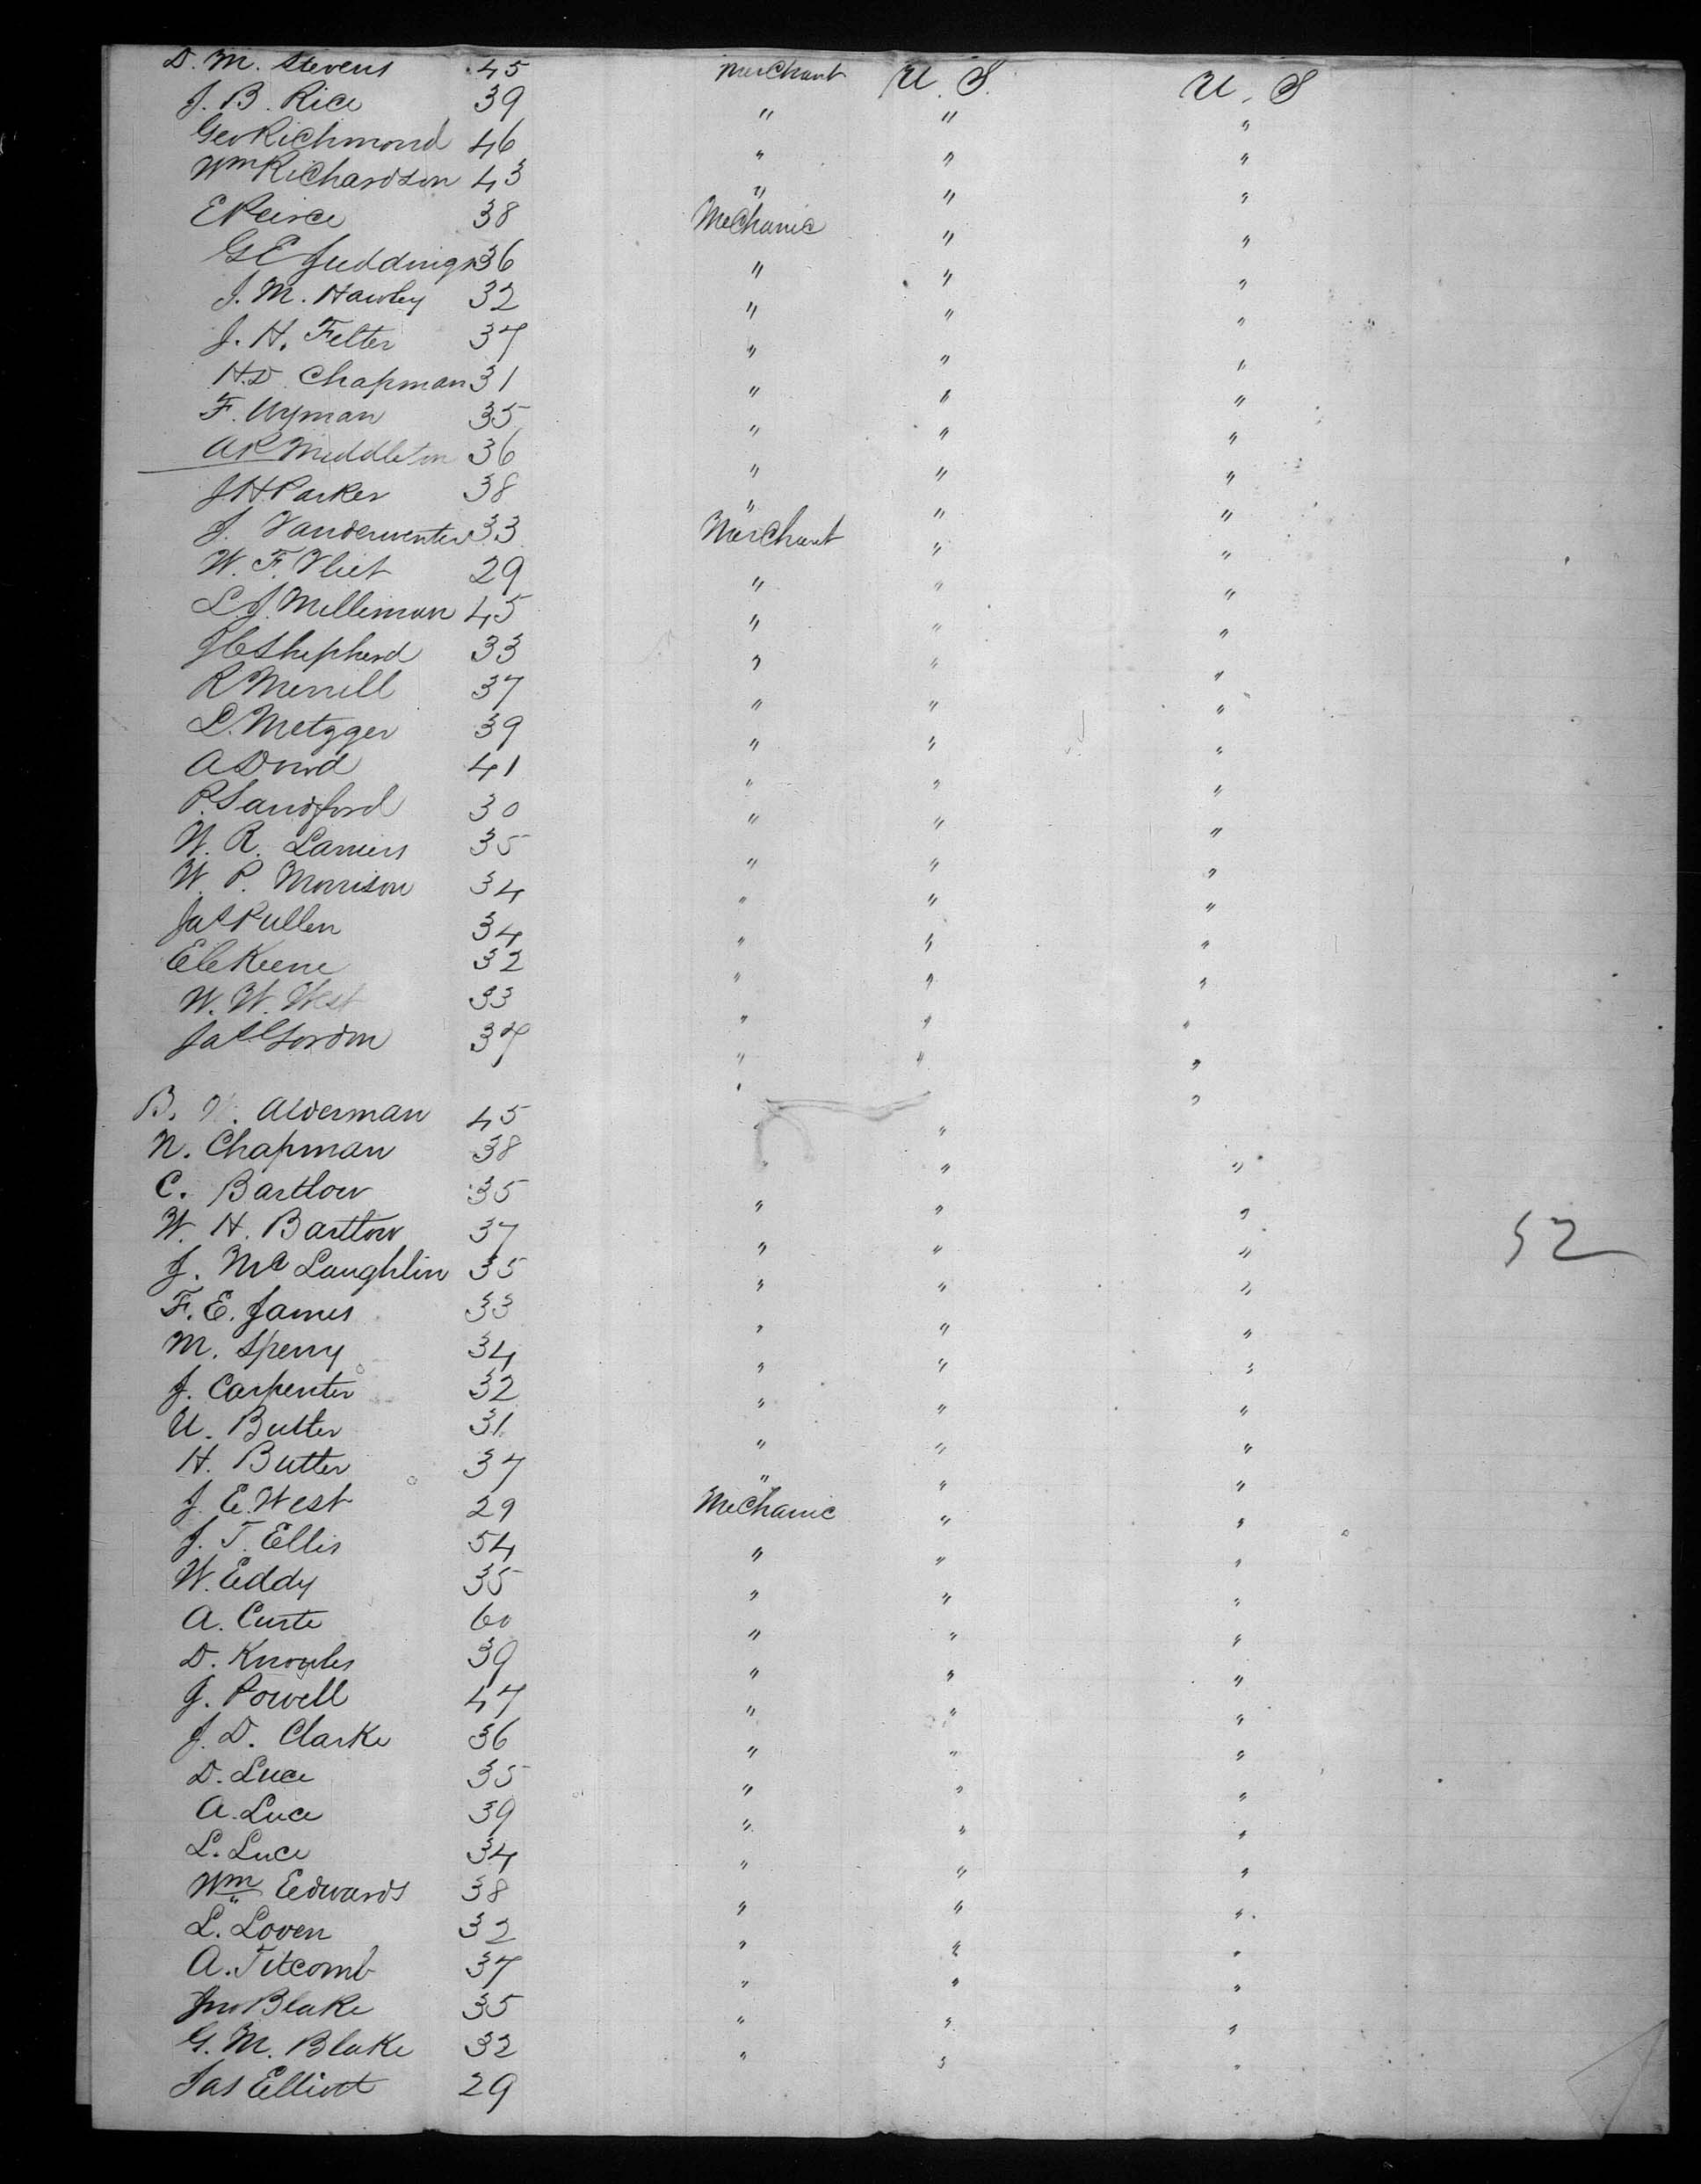 D. M. Stevens 45 Merchant U. S. U. S
J. B. Rice 39 " " "
Geo Richmond 46 " " "
Wm Richardson 43 " " "
E Peirce 38 Mechanic " "
G E Juddings 36 " " "
J. M. Hawley 32 " " "
J. H. Felter 37 " " "
H. D. Chapman 31 " " "
F. Wyman 35 " " "
A R Middleton 36 " " "
J H Parker 38 " " "
J. Vanderventer 33 Merchant " "
W. F. Vliet 29 " " "
L. J. Milliman 45 " " "
J C Shepherd 33 " " "
R Merrill 37 " " "
L. Metzger 39 " " "
A 41 " " "
P. Sandford 30 " " "
W. R. Lamers 35 " " "
W. P. Morrison 34 " " "
Jas Pullen 34 " " "
E C Keene 32 " " "
W. W. West 33 " " "
Jas Gordon 37 " " "
B. Alderman 45 " " "
N. Chapman 38 " " "
C. Bartlow 35 " " "
W. H. Bartlow 37 " " " 52
J. McLaughlin 35 " " "
F. E. James 33 " " "
M. Sperry 34 " " "
J. Carpenter 32 " " "
U. Butler 31 " " "
H. Butler 37 " " "
J. E. West 29 Mechanic " "
J. T. Ellis 54 " " "
W. Eddy 35 " " "
A. Curte 60 " " "
D. Knowles 39 " " "
J. Powell 47 " " "
J. D. Clarke 36 " " "
D. Luce 35 " " "
A. Luce 39 " " "
L. Luce 34 " " "
Wm Edwards 38 " " "
L. Loven 32 " " "
A. Titcomb 37 " " "
Jno Blake 35 " " "
G. M. Blake 32 " " "
Jas Elliott 29